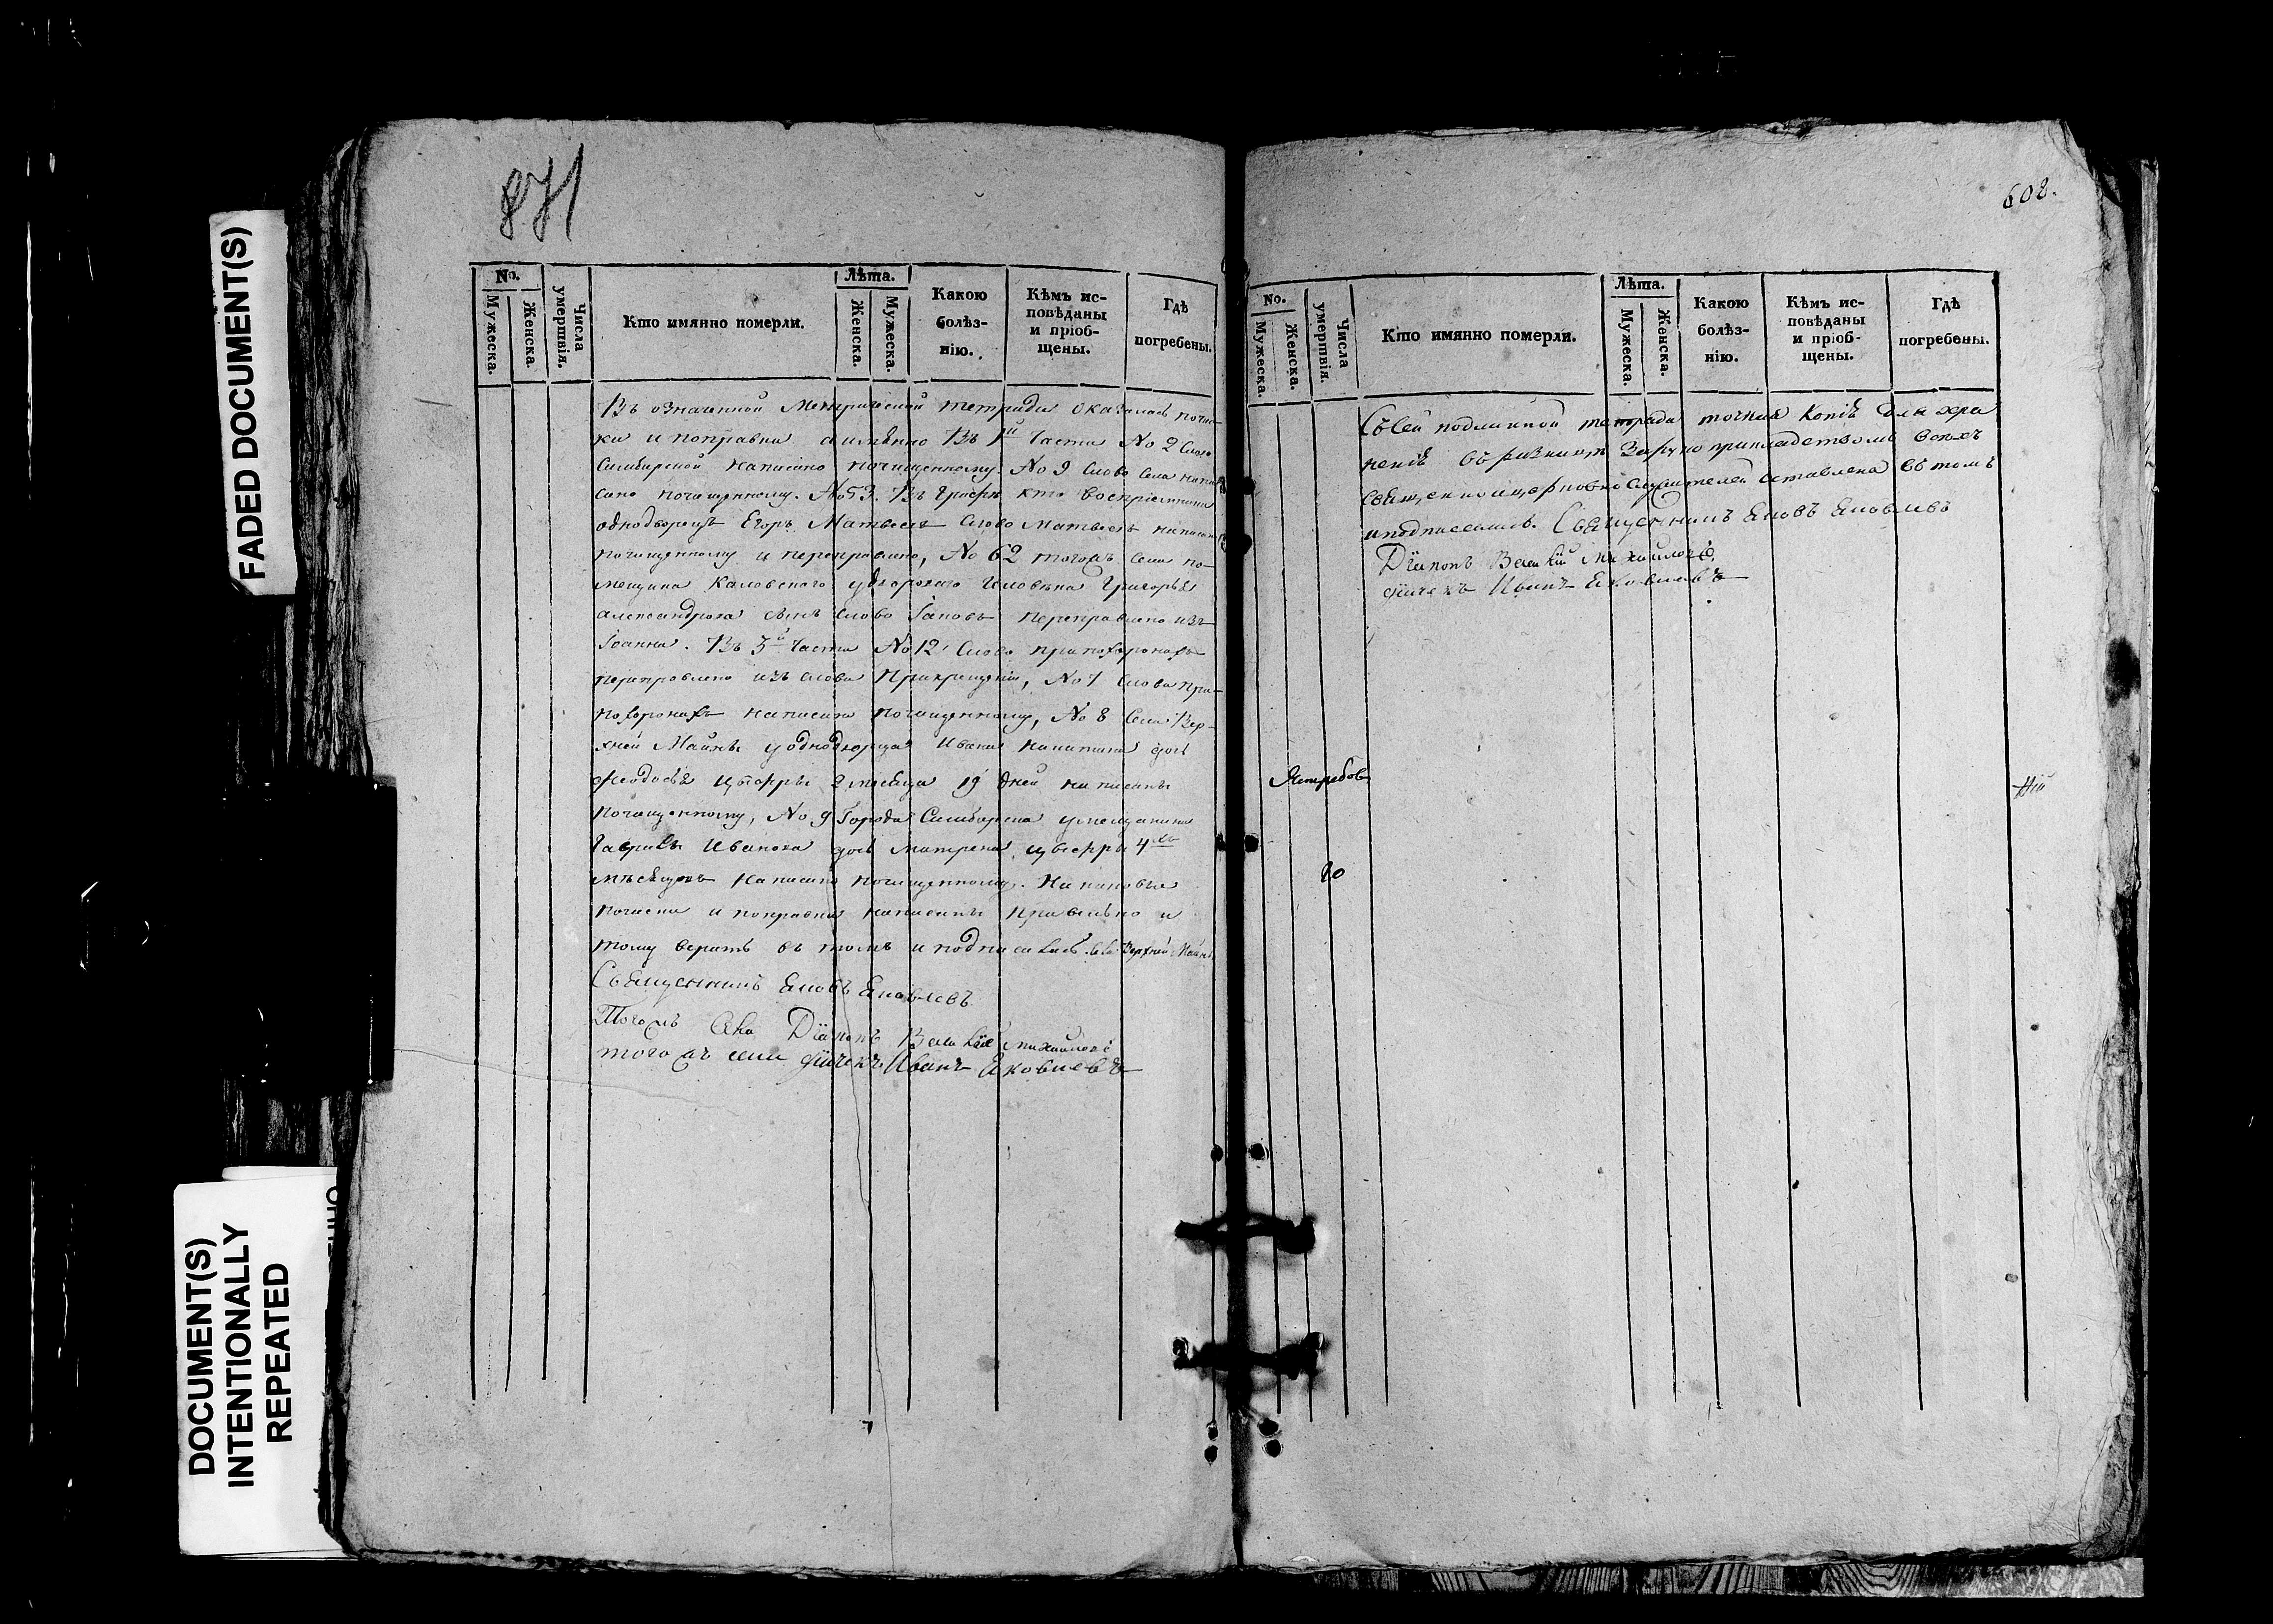 871
No.
Мужеска.
Женска.
Числа умертвія.
Кто имянно померли.
Лѣта.
Женска.
Мужеска.
Какою болѣз-
нію.
Кѣмъ ис-
повѣданы
и пріоб-
щены.
Гдѣ
погребены.
Въ означенной Метрической тетради оказалась почис-
ки и поправки а имянно Въ 1й Части No 2 Слово
Симбирской написано почищенному. No 9 Слово Села напи
сано почищенному. No 53. Въ Графѣ кто Воспріемники
однодворецъ Егоръ Матвеевъ Слово Матвеевъ написано
почищенному и переправлено, No 62 тогожъ Села по-
мещика у двороваго человѣка Григорья
Александрова сынъ Слово Іаковъ переправлено изъ
Іоанна. Въ 3й Части No 12 Слово при похоронахъ
переправлено изъ слова При крещеніи, No 7 Слова при-
похоронахъ написано почищенному, No 8 Села Вер-
хней Майны у однодворца Ивана Никитина дочь
Феодосья 2 месяца 19 дней написаны
почищенному, No 9 Города Симбирска у мещанина
Гаврилы Иванова дочь Матрена 4хъ
мѣсяцовъ написано почищенному. Каковыя
почиски и поправки написаны правильно и
тому верить въ томъ и подписались села Верхней Майны
Священникъ Іаковъ Яковлевъ
Тогожъ села Діаконъ Василій Михайловъ
того жъ села дьячекъ Иванъ Яковлевъ
602.
No.
Мужеска.
Женска.
Числа умертвія.
Кто имянно померли.
Лѣта.
Мужеска.
Женска.
Какою
болѣз-
нію.
Кѣмъ ис-
повѣданы
и пріоб-
щены.
Гдѣ
погребены.
Съ Сей подлинной тетради точная Копія для хра
ненія въ ризницѣ За рукоприкладствомъ всехъ
священноцерковнослужителей оставлена въ томъ
и подписались. Священникъ Іаковъ Яковлевъ
Діаконъ Василій Михайловъ,
дьячекъ Иванъ Яковлевъ
Ястребов
FADED DOCUMENT(S)
DOCUMENT(S)
INTENTIONALLY
REPEATED